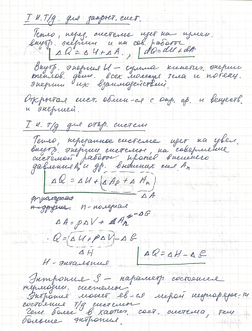 I н. т/д для закрыт. сист.
Тепло, перед. системе идет на
внутр. энергии и на сов. работы
ΔQ = ΔU + ΔA, dQ = dU + dA
Внутр. энергия U – сумма кинетич. энергии
теплов. движ. всех молекул тела и потенц.
энергии их взаимодействия.
Открытая сист. обмен-ся с окр. ср. и веществ.
и энергией.
I н. т/д для откр. систем
Тепло, переданное системе идет на увел.
внутр. энергии системы, на совершение
системой работы против внешнего
давления и др. внешних сил
ΔQ = ΔU + ΔAp + ΔAn
ΔA
n - полезная
ΔA = pΔV +
ΔQ = (ΔU + pΔV) -
ΔH
H - энтальпия
ΔQ = ΔH -
Энтропия S – параметр состояния
термодин. системы.
Энтропия может яв-ся мерой
состояния т/д системы.
Чем более в хаотич. сост. система, тем
больше энтропия.